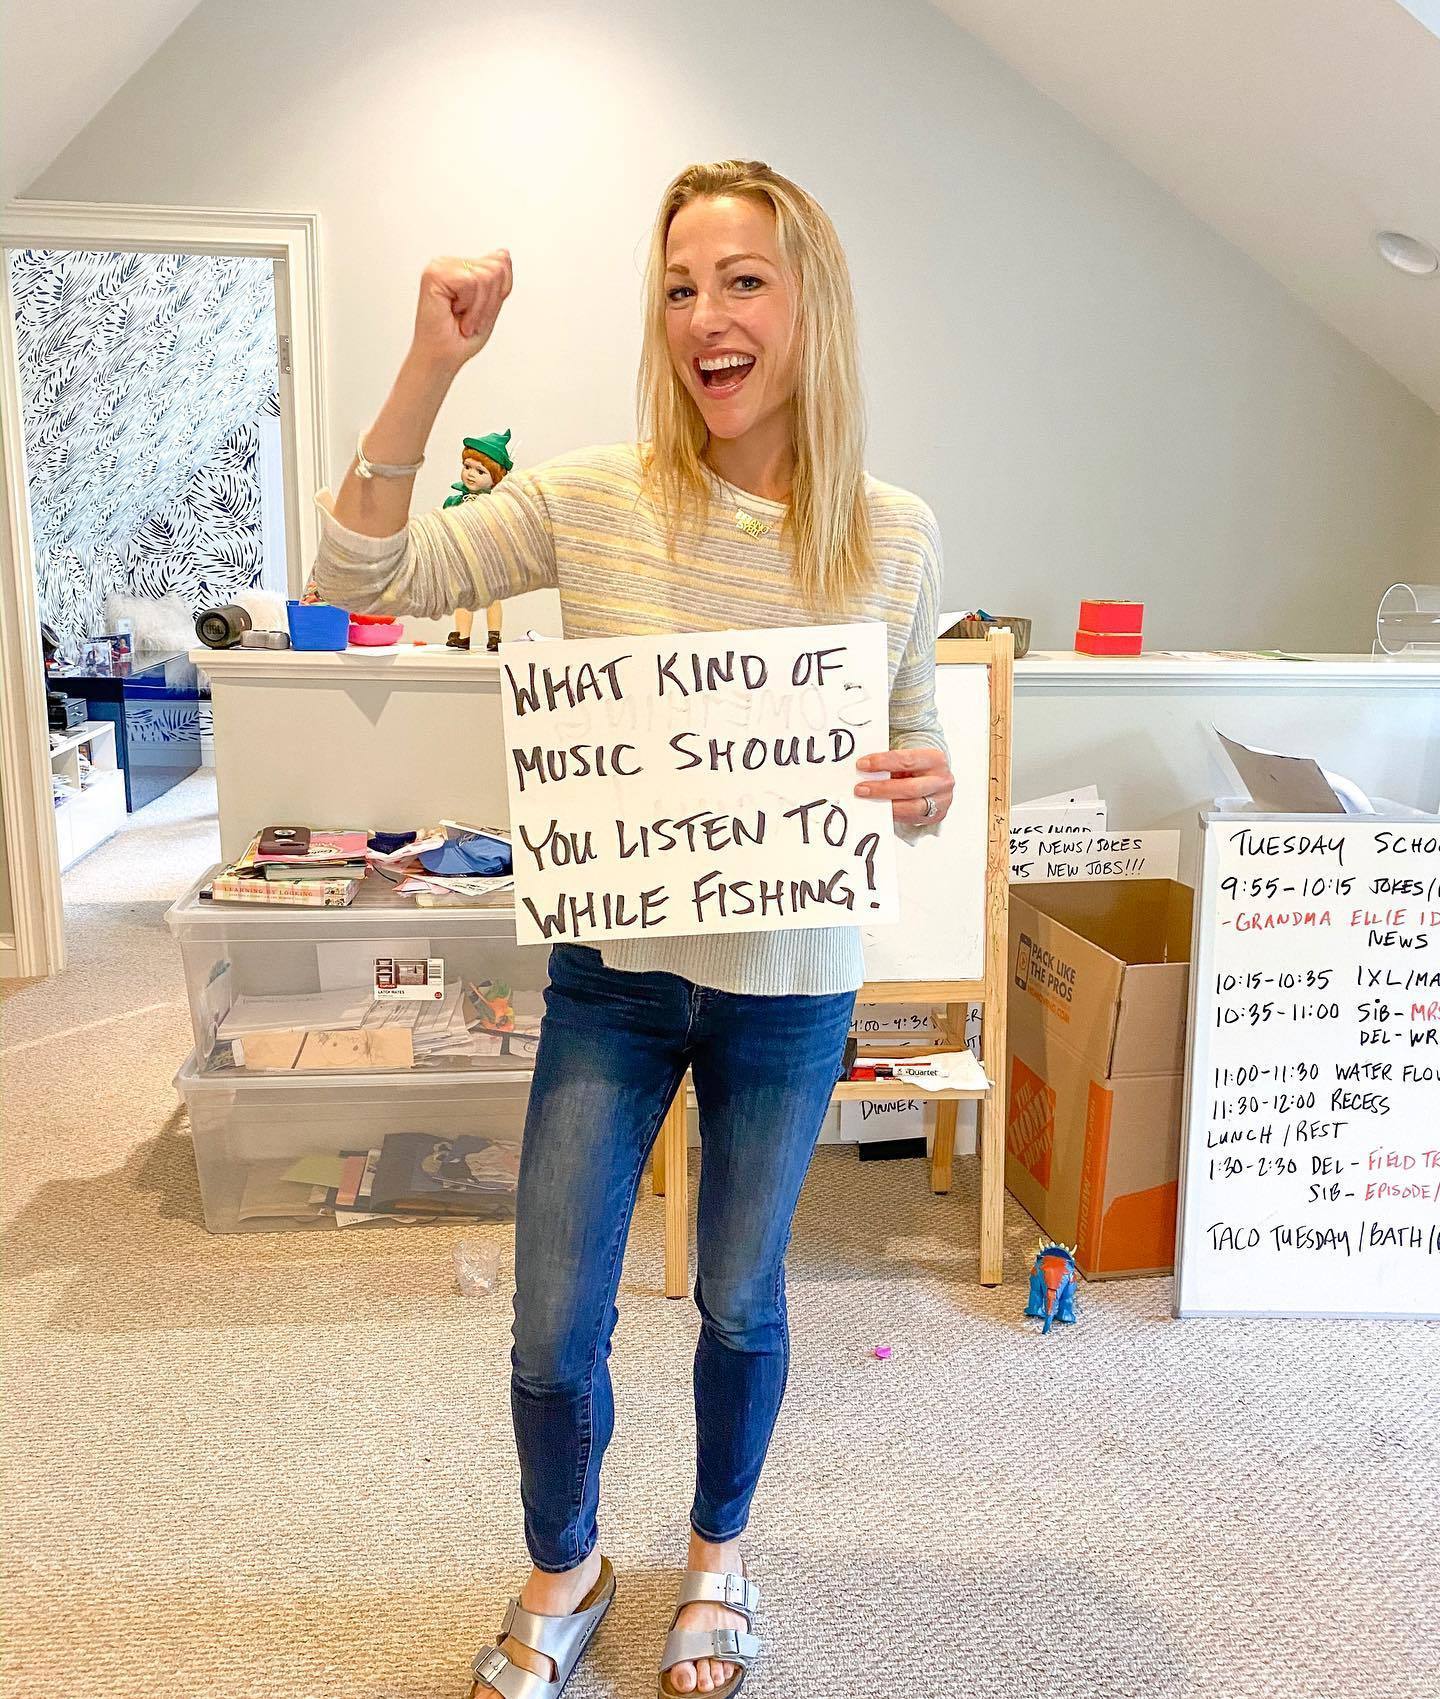 WHAT KIND OF
MUSIC SHOULD
YOU LISTEN TO
WHILE FISHING?
JBL
LEARNING BY LOOKING
LATCH MATES
35 NEWS/JOKES
45 NEW JOBS!!!
PACK LIKE
THE PROS
THE
HOME
DEPOT
4:00-4:30
Quartet
DINNER-
TUESDAY SCHO
9:55-10:15 JOKES/
-GRANDMA ELLIE
NEWS
10:15-10:35 IXL/MA
10:35-11:00 SIB-MRS
DEL-WR
11:00-11:30 WATER FLOW
11:30-12:00 RECESS
LUNCH/REST
1:30-2:30 DEL-FIELD TR
SIB-EPISODE/
TACO TUESDAY/BATH/